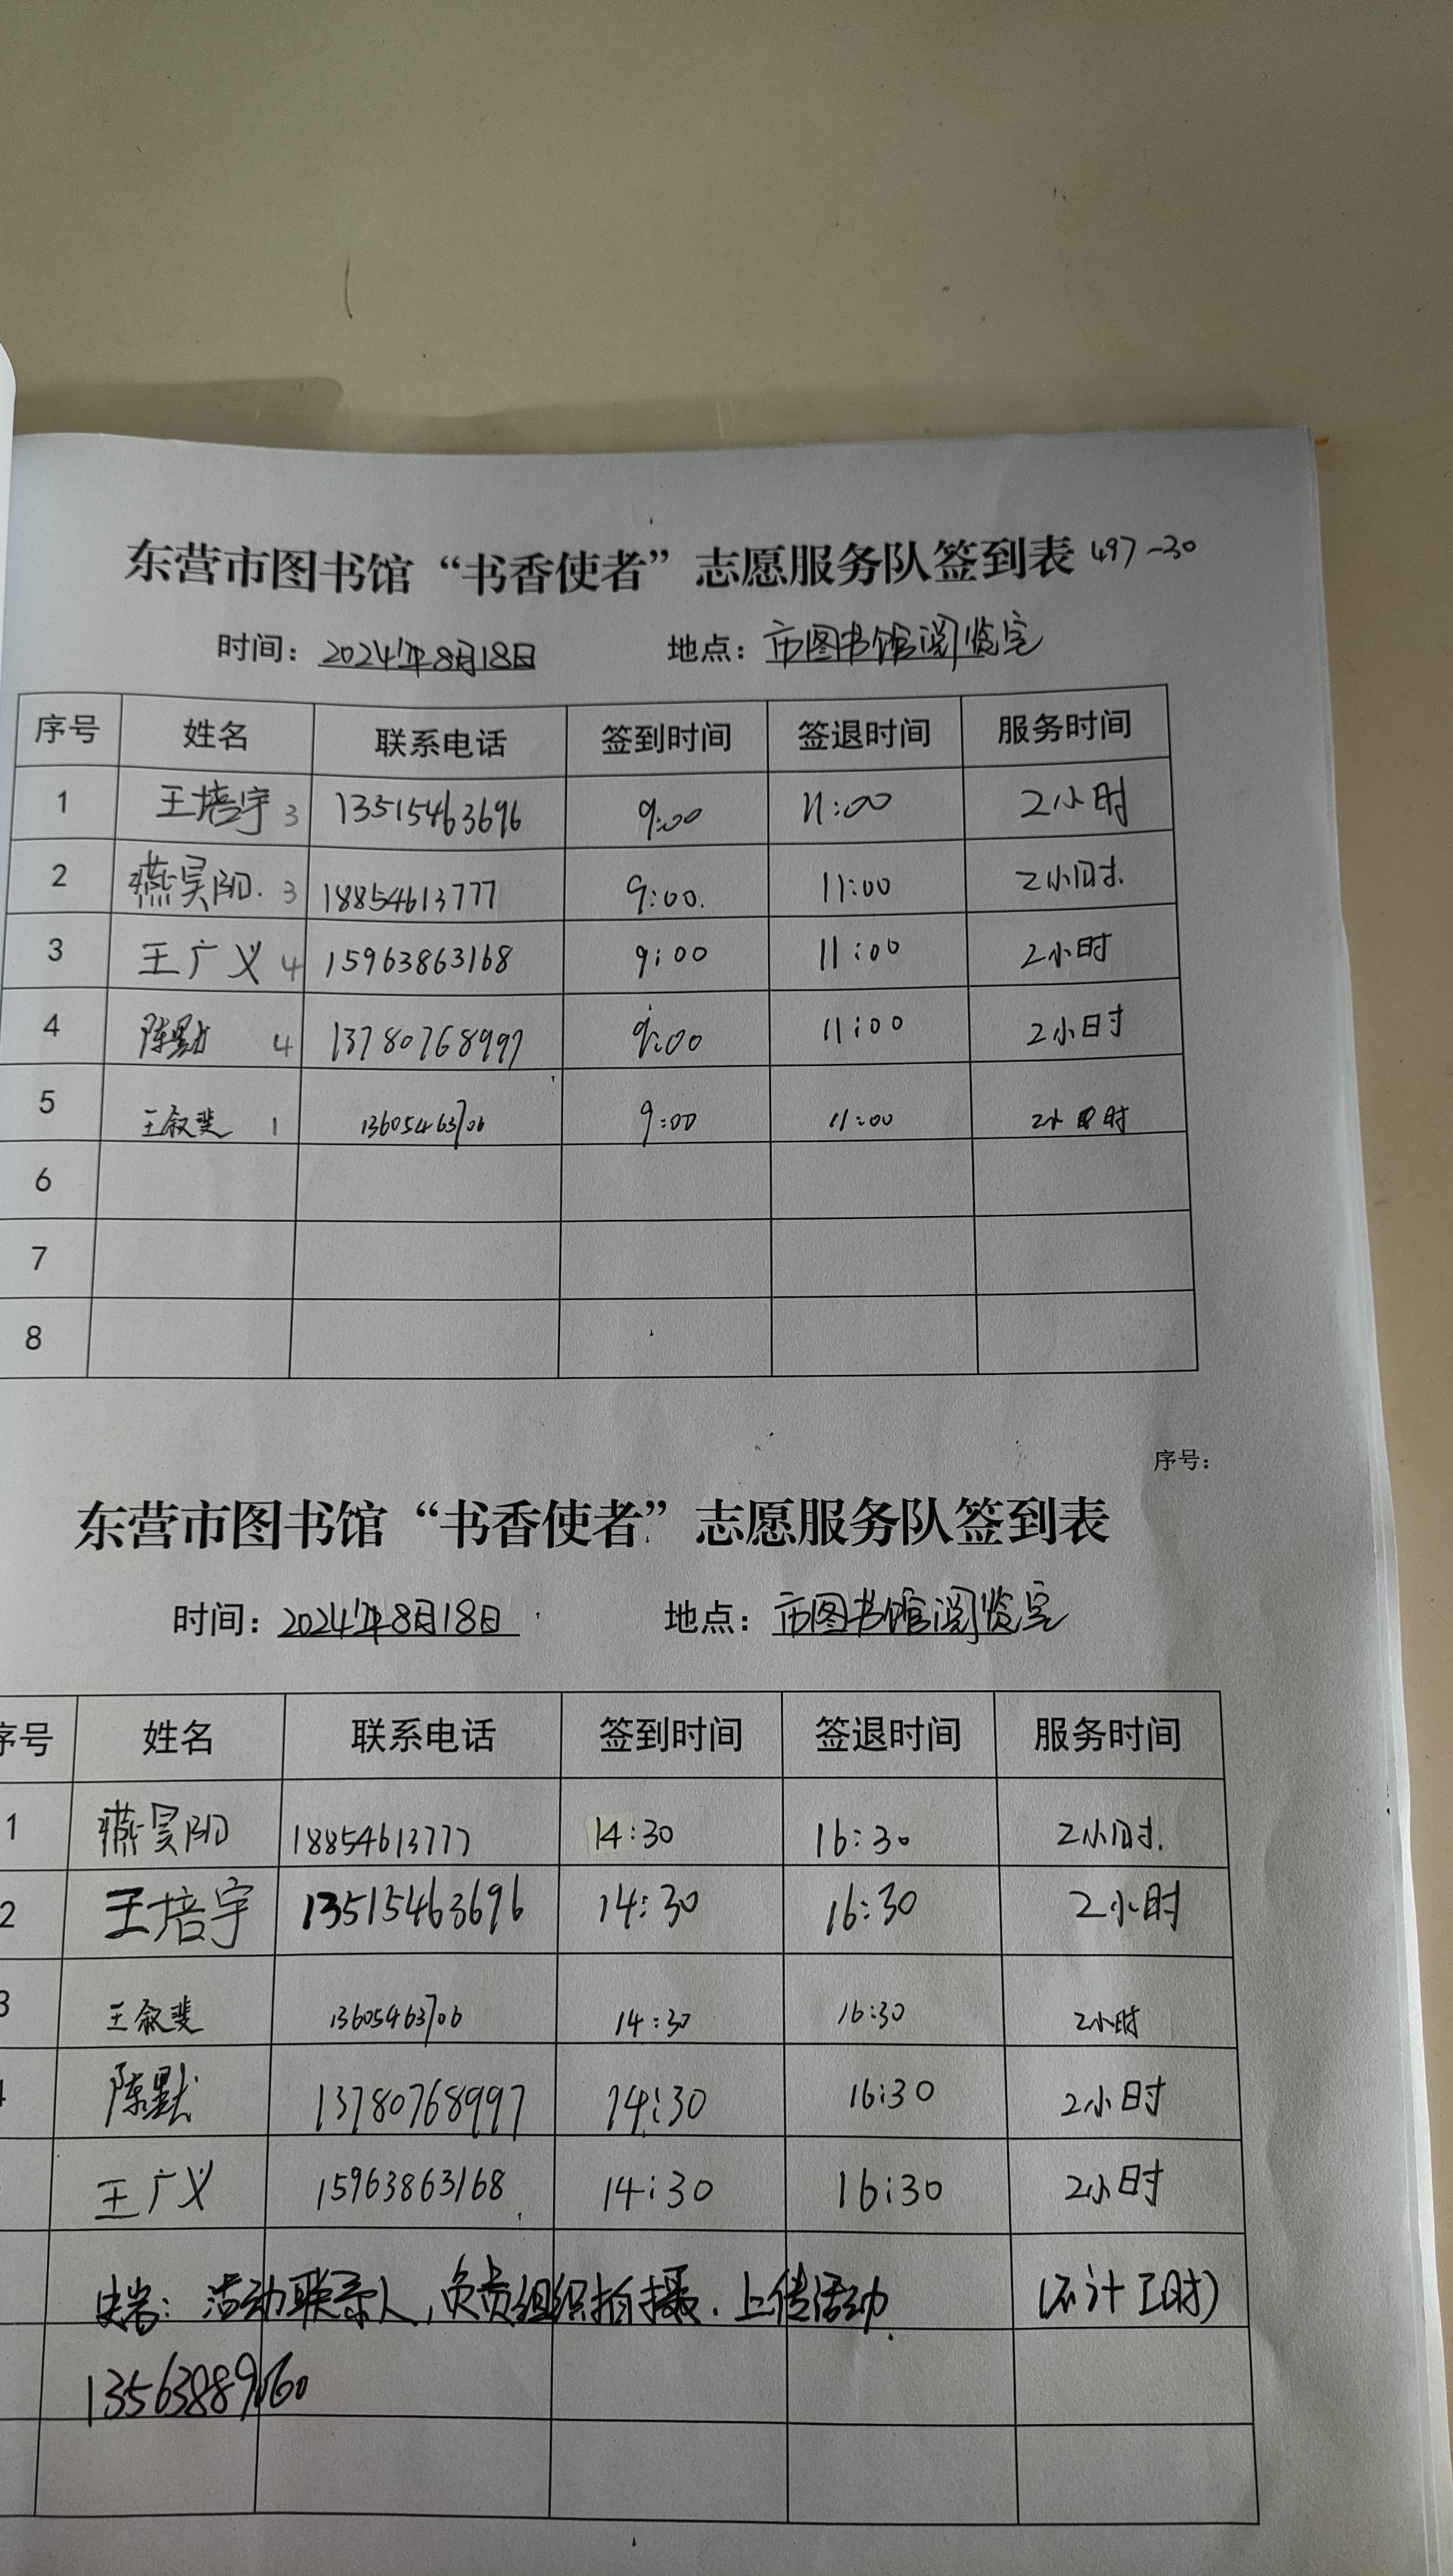 东营市图书馆“书香使者”志愿服务队签到表 497-30
时间：2024年8月18日 地点：市图书馆阅览室
序号 姓名 联系电话 签到时间 签退时间 服务时间
1 王培宇 3 13515463696 9:00 11:00 2小时
2 燕昊阳. 3 18854613777 9:00. 11:00 2小时.
3 王广义 4 15963863168 9:00 11:00 2小时
4 陈默 4 13780768997 9:00 11:00 2小时
5 王叙斐 1 13605463706 9:00 11:00 2小时
6
7
8
序号：
东营市图书馆“书香使者”志愿服务队签到表
时间：2024年8月18日 地点：市图书馆阅览室
序号 姓名 联系电话 签到时间 签退时间 服务时间
1 燕昊阳 18854613777 14:30 16:30 2小时.
2 王培宇 13515463696 14:30 16:30 2小时
3 王叙斐 13605463706 14:30 16:30 2小时
陈默 13780768997 14:30 16:30 2小时
王广义 15963863168 14:30 16:30 2小时
活动联系人，负责组织拍摄.上传活动. (不计工时)